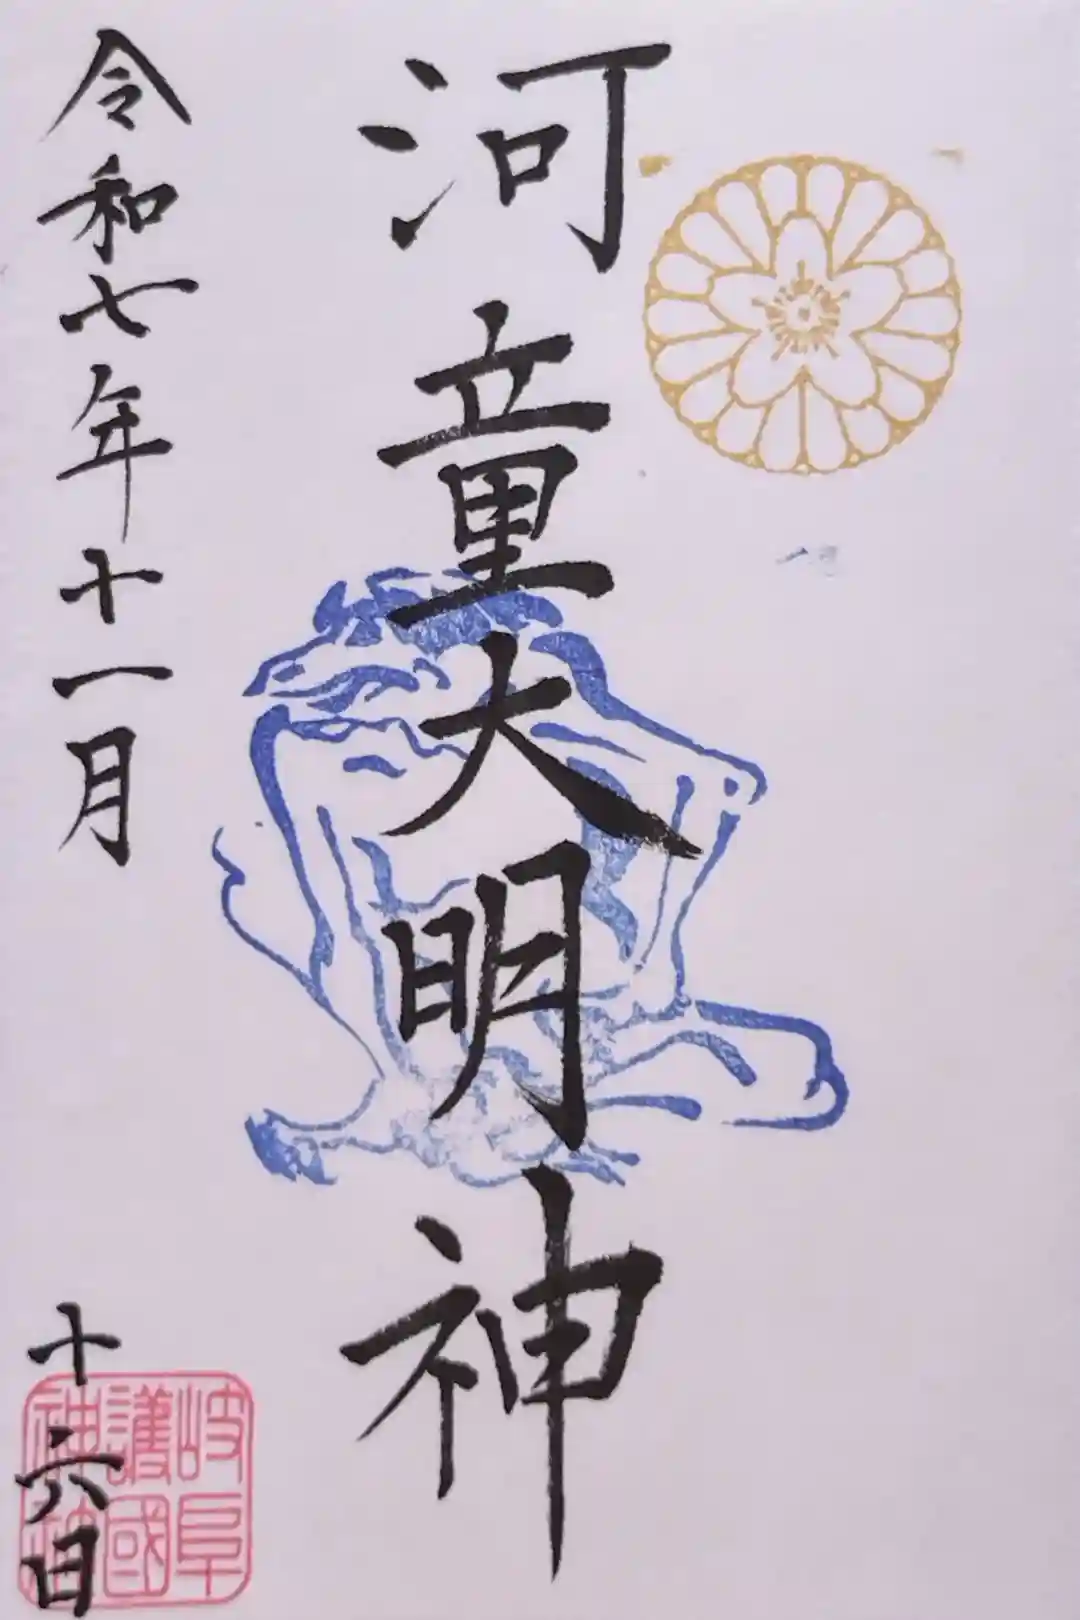 河童大明神
令和七年十一月十六日
岐阜護國神社